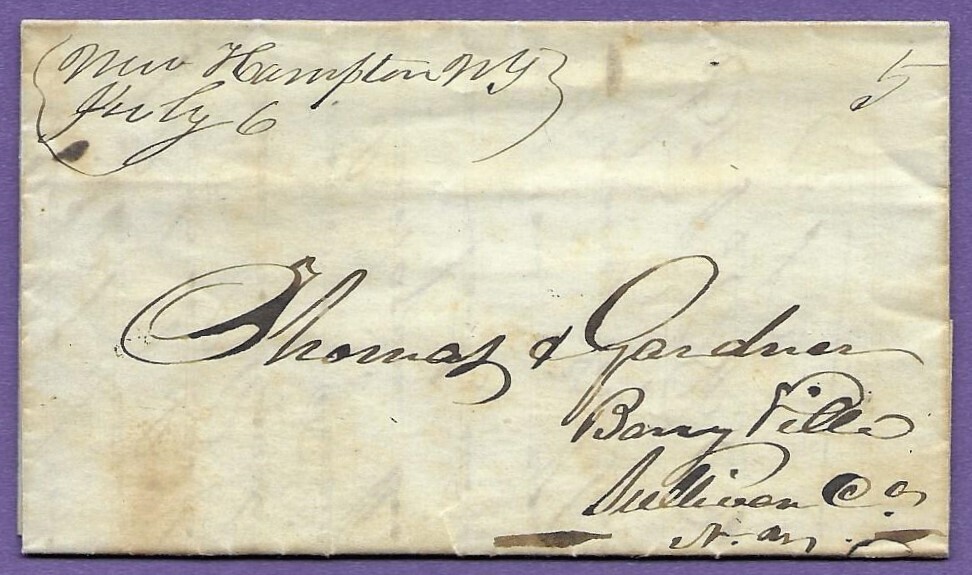 New Hampton NY
July 6
5
Thomas & Gardner
Barry Ville
Sullivan Co.
N. Y.